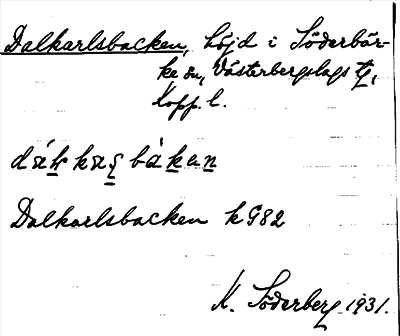 Dalkarlsbacken, höjd i Söderbär-
ke sn, Västerbergslags tg,
Kopp. l.
Dalkarlsbacken k G82
K. Söderberg 1931.